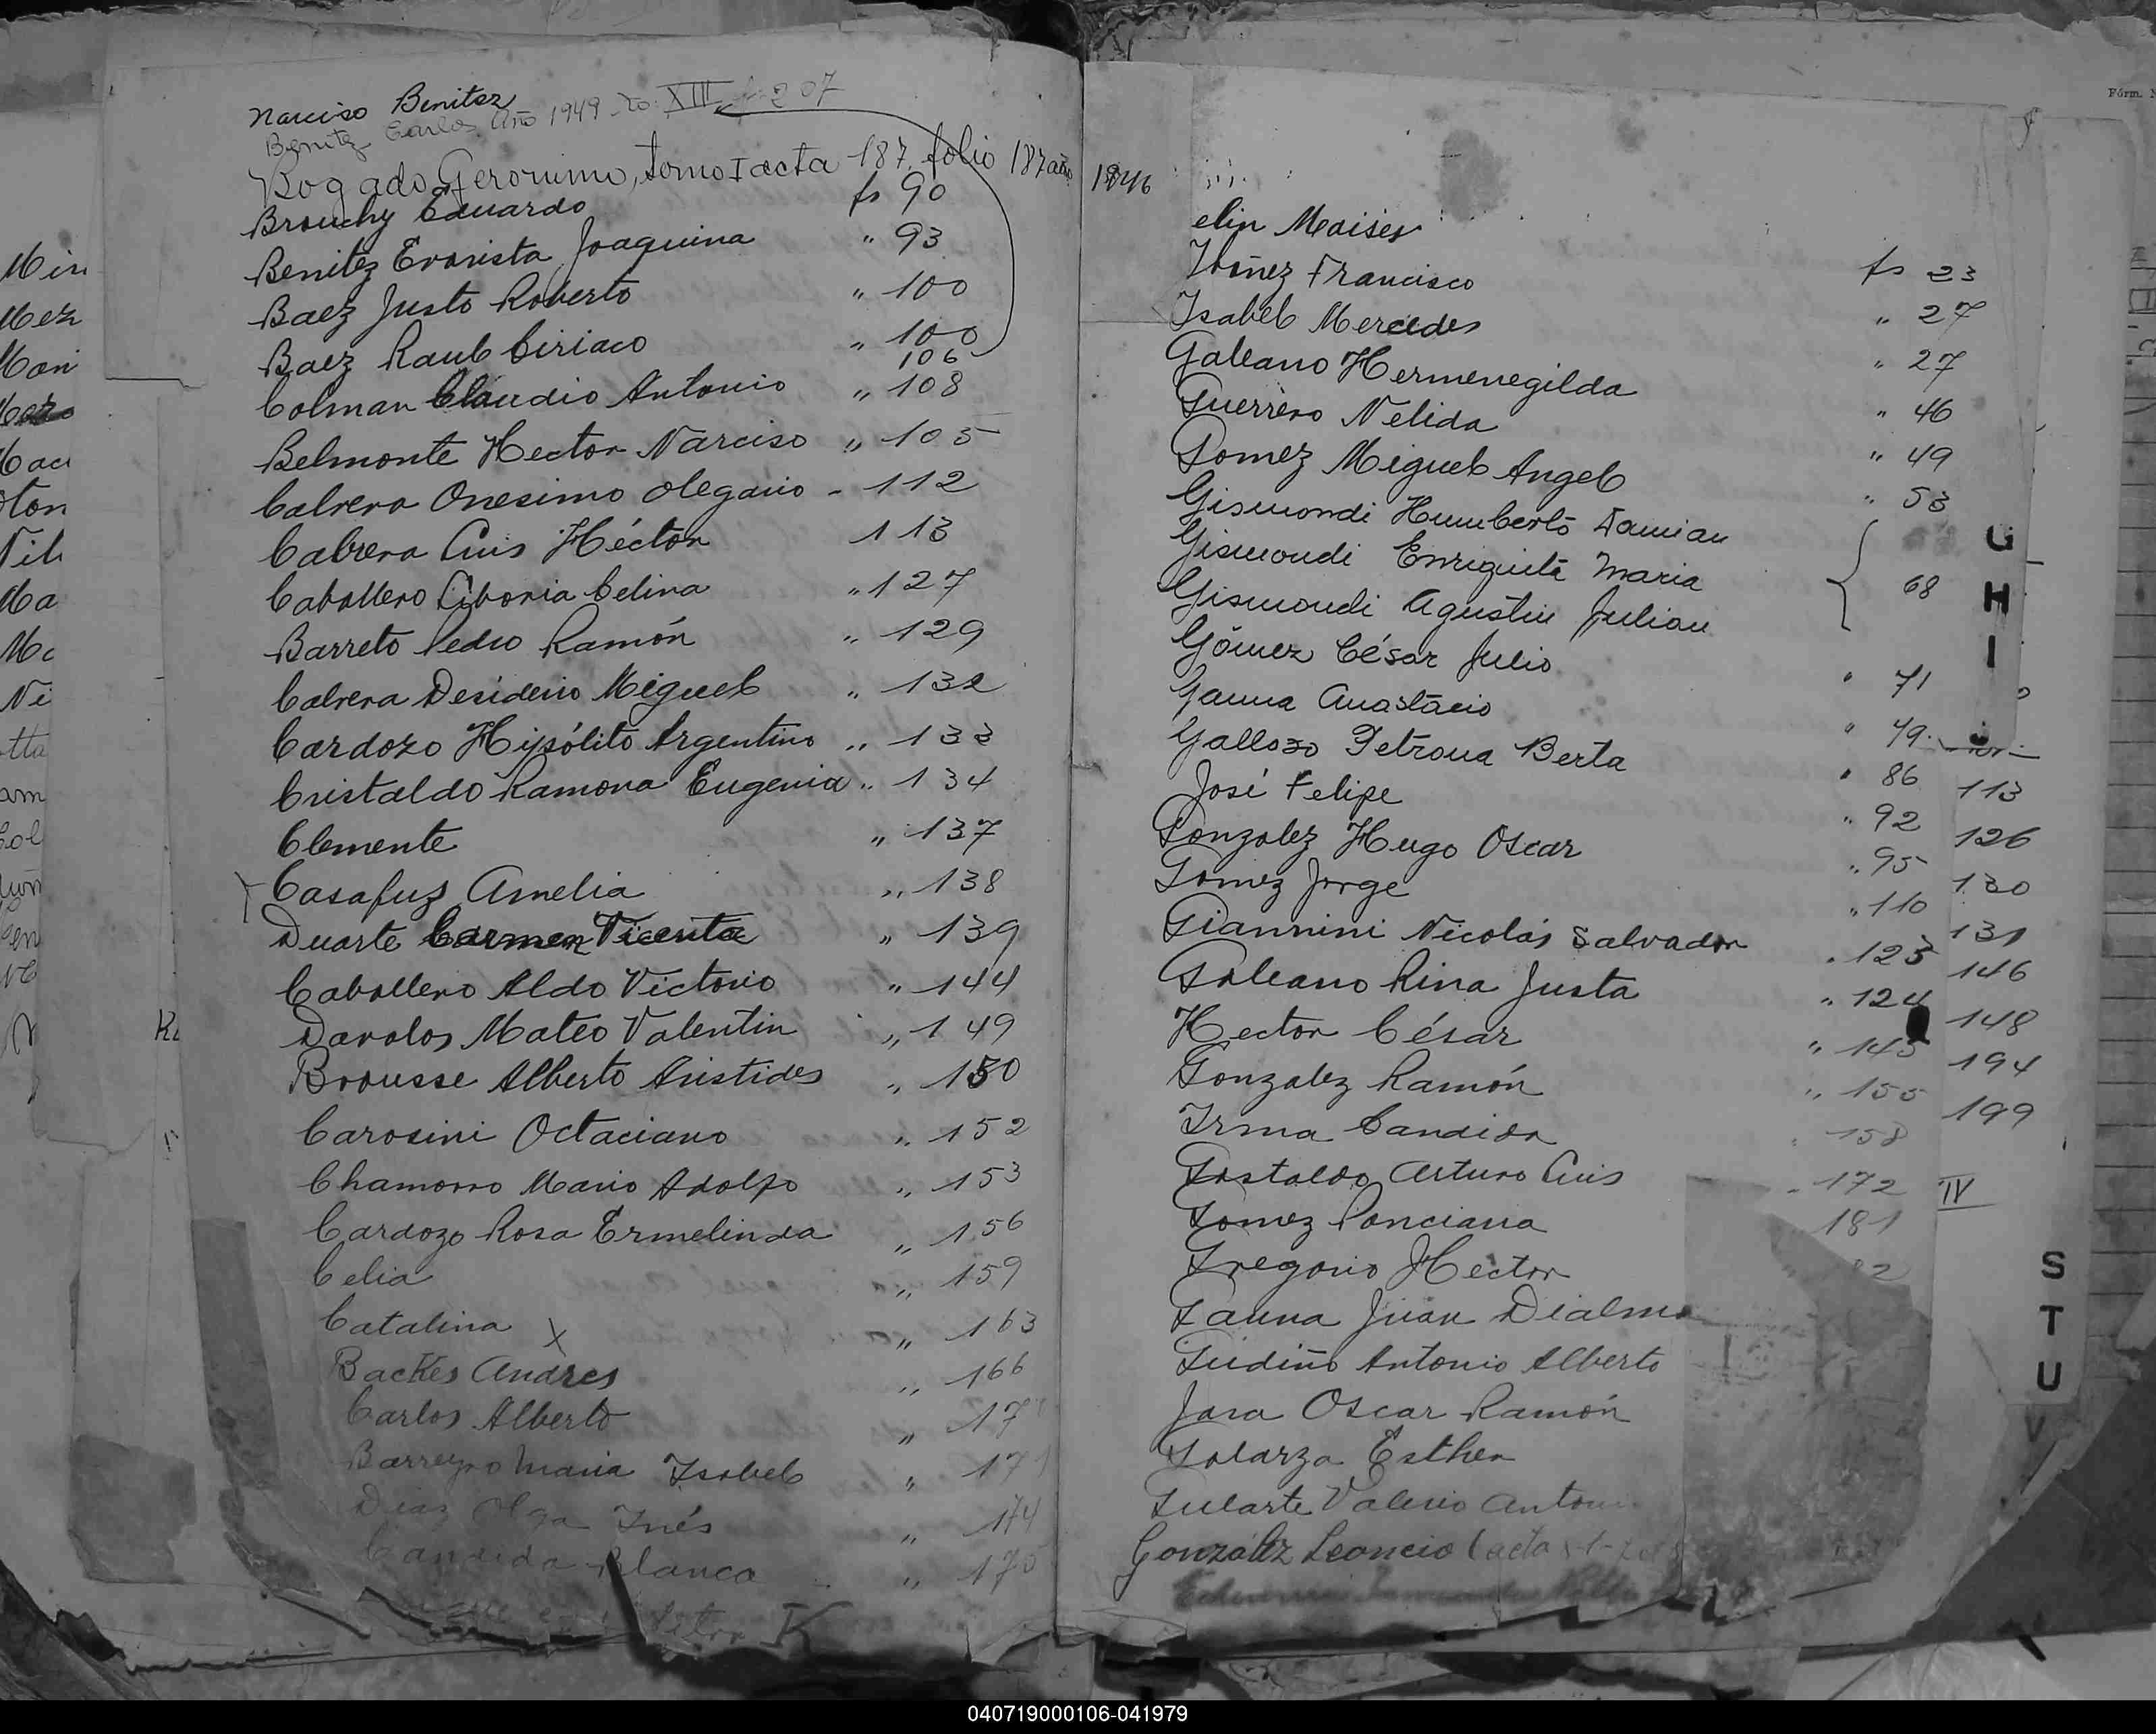 Narciso Benitez
Benitez Carlos Año 1949 To XIII f 207
Bogado Geronimo, tomo I acta 187 folio 187 año 1946
Brouchy Eduardo fs 90
Benitez Evarista Joaquina " 93
Baez Justo Roberto " 100
Baez Raul Ciriaco " 100
106
Colman Claudio Antonio " 108
Belmonte Hector Narciso " 105
Cabrera Onesimo Olegario - 112
Cabrera Luis Héctor 113
Caballero Liboria Celina " 127
Barreto Pedro Ramón " 129
Cabrera Desiderio Miguel " 132
Cardozo Hipólito Argentino " 133
Cristaldo Ramona Eugenia " 134
Clemente " 137
Casafuz Amelia " 138
Duarte Carmen Vicenta " 139
Caballero Aldo Victorio " 144
Davalos Mateo Valentin " 149
Brousse Alberto Aristides " 150
Carosini Octaciano " 152
Chamorro Mario Adolfo " 153
Cardozo Rosa Ermelinda " 156
Celia " 159
Catalina X " 163
Backes Andres " 166
Carlos Alberto " 17
Barreyro Maria Isabel " 17
Dias Olga Inés " 174
Candida Blanca " 175
letra K
elin Moises
Ibañez Francisco fs 23
Isabel Mercedes " 27
Galeano Hermenegilda " 27
Guerrero Nelida " 46
Gomez Miguel Angel " 49
Gismondi Humberto Damian " 53
Gismondi Enriquita Maria
Gismondi Agustin Julian 68
Gómez César Julio " 71
Gauna Anastacio " 79
Gallozo Petrona Berta " 86
José Felipe " 92
Gonzalez Hugo Oscar " 95
Gomez Jorge " 110
Giannini Nicolás Salvador " 123
Galeano Rina Justa " 124
Hector César " 145
Gonzalez Ramón " 155
Irma Candida " 158
Gastaldo Arturo Luis " 172
Gomez Ponciana 181
Gregorio Hector
Gauna Juan Dialma
Gudiño Antonio Alberto
Jara Oscar Ramón
Galarza Esther
Gularte Valerio
González Leoncio (acta
113
126
130
131
146
148
194
199
IV
G
H
I
S
T
U
V
Fórm.
040719000106-041979